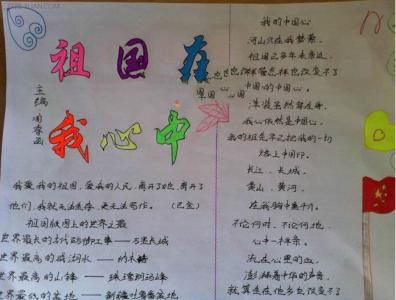 祖国在
我心中
主编
我爱我的祖国，爱我的人民，离开了她，离开了
他们，我就无法生存，更无法写作。（巴金）
祖国版图上的世界之最
世界最高的山峰——珠穆朗玛峰
世界最低的盆地——新疆吐鲁番盆地
我的中国心
河山只在我梦萦
祖国已多年未亲近
可是不论怎样也改变不了
我的中国心
洋装虽然穿在身
我心依然是中国心
我的祖先早已把我的一切
烙上中国印
长江、长城
黄山、黄河
在我胸中重千斤
不论何时、不论何地
心中一样亲
流在心里的血
澎湃着中华的声音
就算生在他乡也改变不了